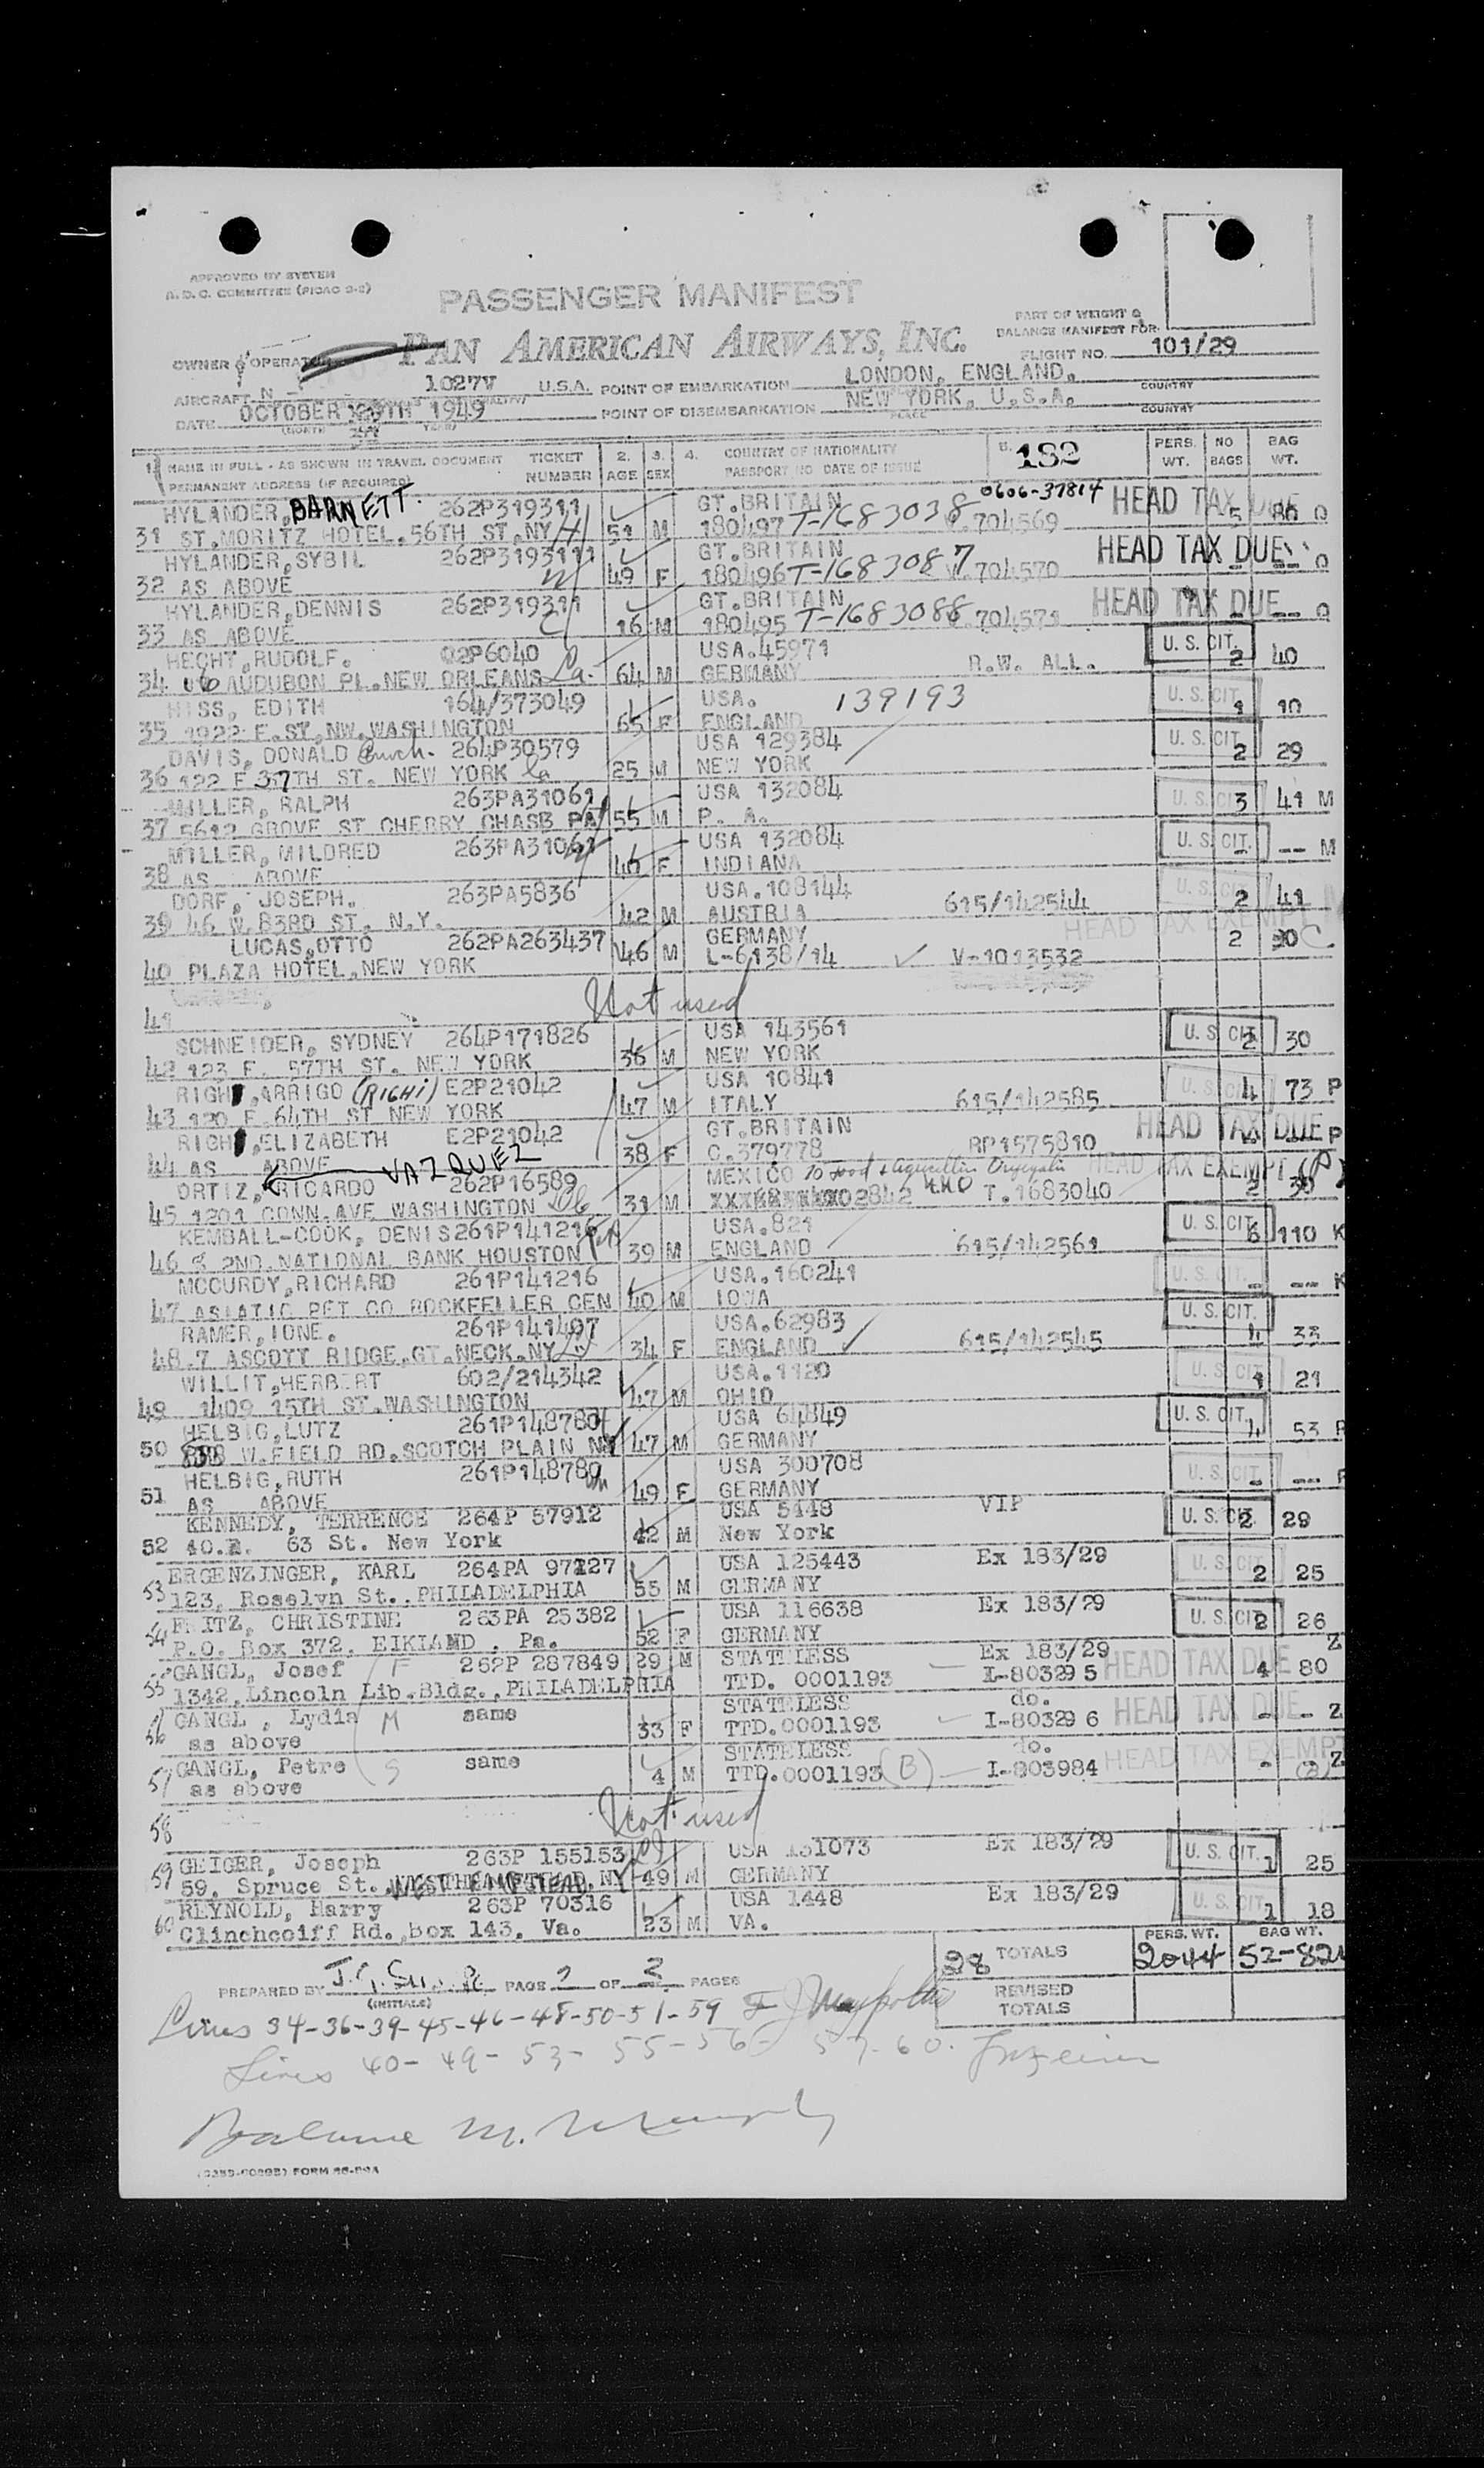 APPROVED BY SYSTEM
A.D.C. COMMITTEE (PICAO 2-2)
PASSENGER MANIFEST
PART OF WEIGHT &
BALANCE MANIFEST FOR
OWNER & OPERATOR PAN AMERICAN AIRWAYS, INC. FLIGHT NO. 101/29
AIRCRAFT N 1027V U.S.A. POINT OF EMBARKATION LONDON, ENGLAND. COUNTRY
DATE OCTOBER 29TH 1949 POINT OF DISEMBARKATION NEW YORK, U.S.A. COUNTRY
(MONTH YEAR) PLACE
1. NAME IN FULL - AS SHOWN IN TRAVEL DOCUMENT TICKET 2. 3. 4. COUNTRY OF NATIONALITY 5. 182 PERS. NO BAG
PERMANENT ADDRESS (IF REQUIRED) NUMBER AGE SEX PASSPORT NO DATE OF ISSUE WT. BAGS WT.
HYLANDER, BARNETT. 262P319311 GT.BRITAIN 0606-37814 HEAD TAX DUE
31 ST.MORITZ HOTEL.56TH ST.NY H 51 M 180497 T-1683038 V.704569 5 80 O
HYLANDER,SYBIL 262P319311 GT.BRITAIN HEAD TAX DUE
32 AS ABOVE W 49 F 180496 T-1683087 V.704570 - -- O
HYLANDER,DENNIS 262P319311 GT.BRITAIN HEAD TAX DUE
33 AS ABOVE C 16 M 180495 T-1683088 V.704571 - -- O
HECHT,RUDOLF. 02P6040 USA.45971 U. S. CIT.
34 AUDUBON PL.NEW ORLEANS La. 64 M GERMANY R.W. ALL. 2 40
HISS, EDITH 164/373049 USA. 139193 U. S. CIT.
35 1922 F.ST,NW.WASHINGTON 65 F ENGLAND 1 10
DAVIS, DONALD 264P30579 USA 129384 U. S. CIT.
36 122 E 37TH ST. NEW YORK 25 M NEW YORK 2 29
MILLER, RALPH 263PA31061 USA 132084 U. S. CIT.
37 5612 GROVE ST CHERRY CHASE PA 55 M P. A. 3 41 M
MILLER, MILDRED 263PA31061 USA 132084 U. S. CIT.
38 AS ABOVE 46 F INDIANA - -- M
DORF, JOSEPH. 263PA5836 USA.108144 U. S. CIT.
39 46 W.83RD ST. N.Y. 42 M AUSTRIA 615/142544 2 41
LUCAS,OTTO 262PA263437 GERMANY HEAD TAX EXEMPT
40 PLAZA HOTEL,NEW YORK 46 M L-6138/14 V-1013532 2 30
41 Not used
SCHNEIDER, SYDNEY 264P171826 USA 143561 U. S. CIT.
42 123 E. 57TH ST. NEW YORK 36 M NEW YORK 2 30
RIGHI,ARRIGO (RIGHI) E2P21042 USA 10841 U. S. CIT.
43 120 E.64TH ST NEW YORK 47 M ITALY 615/142585 4 73 P
RIGHI,ELIZABETH E2P21042 GT.BRITAIN HEAD TAX DUE
44 AS ABOVE 38 F C.379778 RP1575810 - -- P
ORTIZ, RICARDO VAZQUEZ 262P16589 MEXICO HEAD TAX EXEMPT (P)
45 1201 CONN.AVE WASHINGTON 31 M 02842 T.1683040 2 30
KEMBALL-COOK, DENIS 261P141216 USA.821 U. S. CIT.
46 % 2ND.NATIONAL BANK HOUSTON 39 M ENGLAND 615/142561 6 110 K
MCCURDY,RICHARD 261P141216 USA.160241 U. S. CIT.
47 ASIATIC PET CO ROCKFELLER CEN 40 M IOWA - -- K
RAMER,IONE. 261P141407 USA.62983 U. S. CIT.
48.7 ASCOTT RIDGE.GT.NECK.NY 34 F ENGLAND 615/142545 4 33
WILLIT,HERBERT 602/214342 USA.1120 U. S. CIT.
49 1409 15TH ST.WASHINGTON 47 M OHIO 1 21
HELBIG,LUTZ 261P148780 USA 64849 U. S. CIT.
50 W.FIELD RD.SCOTCH PLAIN NJ 47 M GERMANY 4 53 R
HELBIG,RUTH 261P148780 USA 300708 U. S. CIT.
51 AS ABOVE 49 F GERMANY - --
KENNEDY, TERRENCE 264P 57912 USA 5448 VIP U. S. CIT.
52 40.E. 63 St. New York 42 M New York 2 29
ERGENZINGER, KARL 264PA 97127 USA 125443 Ex 183/29 U. S. CIT.
53 123, Roselyn St., PHILADELPHIA 55 M GERMANY 2 25
FRITZ, CHRISTINE 263PA 25382 USA 116638 Ex 183/29 U. S. CIT.
54 P.O. Box 372, EIKIAND , Pa. 52 F GERMANY 2 26
GANGL, Josef F 262P 287849 29 M STATELESS Ex 183/29 HEAD TAX DUE Z
55 1342,Lincoln Lib.Bldg., PHILADELPHIA TTD. 0001193 I-80329 5 4 80
GANGL , Lydia M same STATELESS do. HEAD TAX DUE
56 as above 33 F TTD.0001193 I-80329 6 - - Z
GANGL, Petre S same STATELESS do. HEAD TAX EXEMPT
57 as above 4 M TTD.0001193 (B) I-803984 - - Z
58 Not used
GEIGER, Joseph 263P 155153 USA 131073 Ex 183/29 U. S. CIT.
59 59, Spruce St. WEST HEMPSTEAD, NY 49 M GERMANY 1 25
REYNOLD, Harry 263P 70316 USA 1448 Ex 183/29 U. S. CIT.
60 Clinchcoiff Rd.,Box 143, Va. 23 M VA. 1 18
28 TOTALS PERS. WT. 2044 BAG WT. 52-821
PREPARED BY (INITIALS) PAGE 2 OF 2 PAGES
REVISED TOTALS
Lines 34-36-39-45-46-48-50-51-59
Lines 40-49-53-55-56-57-60.
Balance M. Murphy